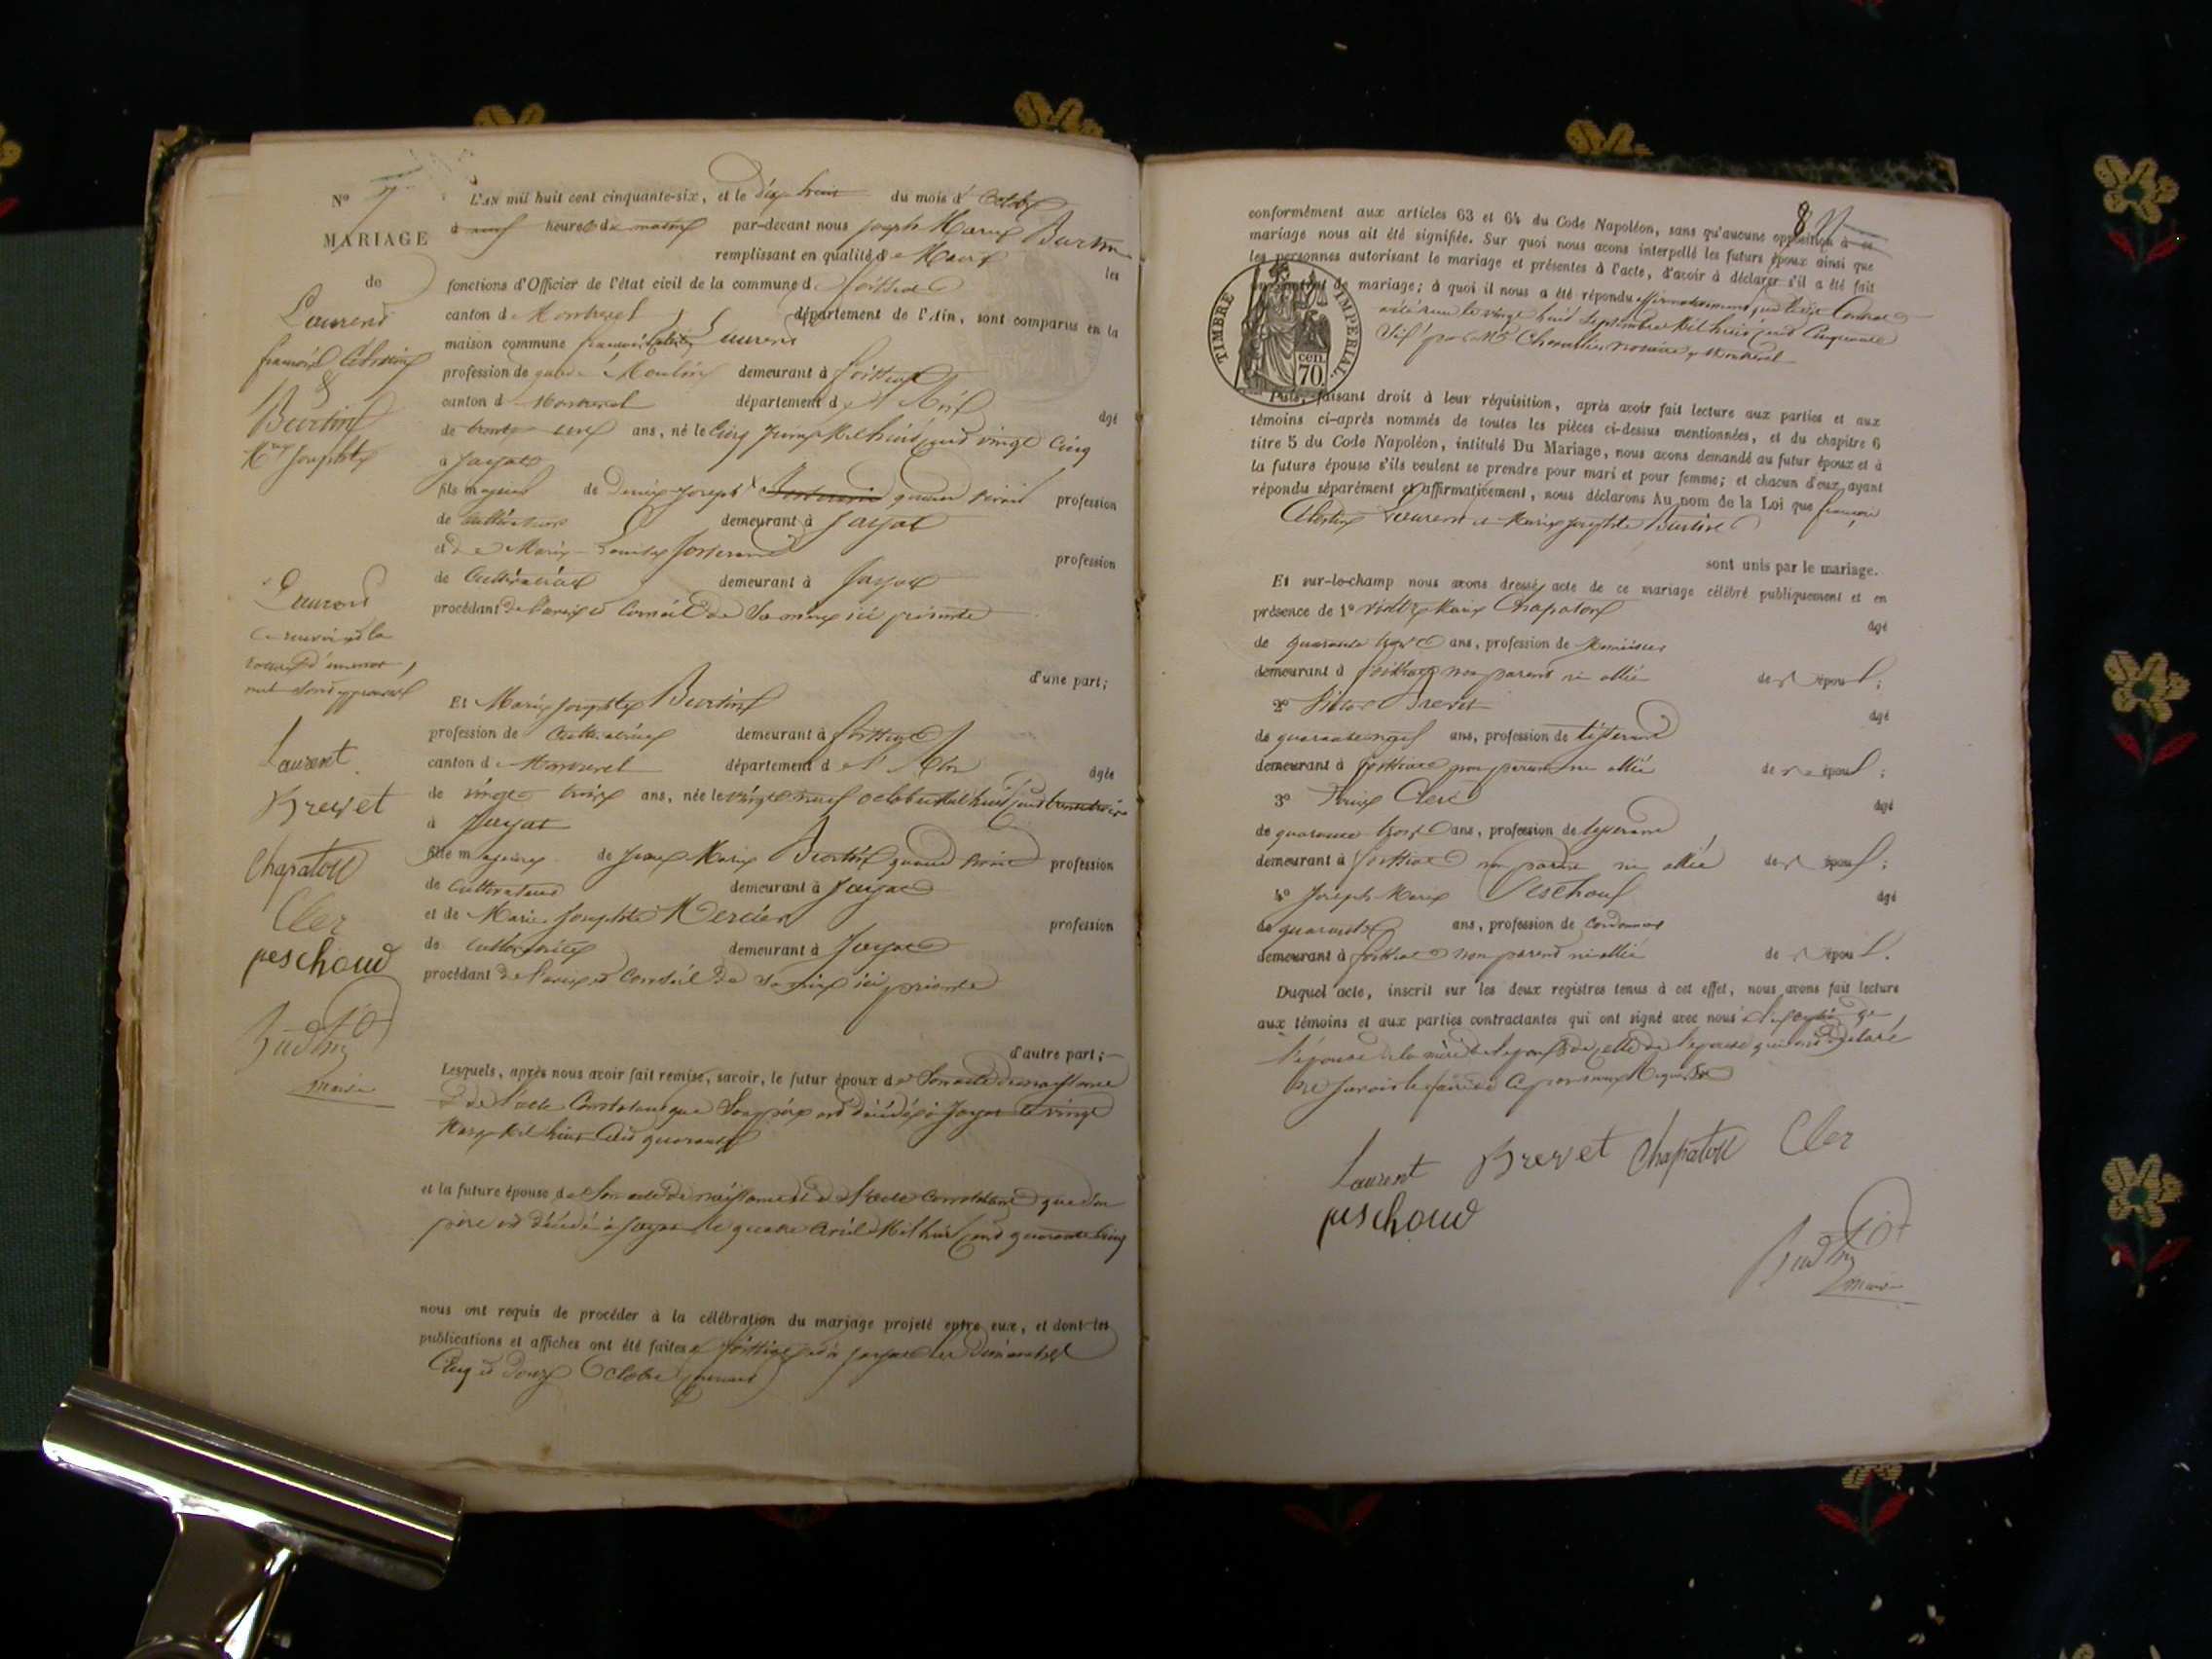 N° 7
MARIAGE
de
Laurent
françois Célestin
&
Burtin
Mie Josephte
L'AN mil huit cent cinquante-six, et le dix huit du mois d'Octobre
à neuf heures du matin par-devant nous Joseph Marie Burtin
remplissant en qualité de Maire les
fonctions d'Officier de l'état civil de la commune d
canton de Montrevel département de l'Ain, sont comparus en la
maison commune françois Célestin Laurent
profession de garde Moulin demeurant à
canton de Montrevel département de l'Ain âgé
de trente un ans, né le cinq juin Mil huit cent vingt cinq
à Jayat
fils majeur de Joseph quand vivait profession
de cultivateur demeurant à Jayat
et de Marie Louise profession
de Cultivatrice demeurant à Jayat
procédant de l'avis et Conseil de Sa mère ici présente
d'une part;
Laurent
Brevet
Chapaton
Cler
peschoud
maire
Et Marie Josephte Burtin
profession de Cultivatrice demeurant à
canton de Montrevel département de l'Ain âgée
de vingt trois ans, née le vingt neuf octobre Mil huit cent trente
à Jayat
fille majeure de Jean Marie Burtin quand vivait profession
de Cultivateur demeurant à Jayat
et de Marie Josephte Mercier profession
de cultivatrice demeurant à Jayat
procédant de l'avis et Conseil de Sa mère ici présente
d'autre part;
Lesquels, après nous avoir fait remise, savoir, le futur époux de Son acte de naissance
& de l'acte Constatant que Son père est décédé à Jayat le vingt
Mars Mil huit Cent quarante
et la future épouse de Son acte de naissance et de l'acte Constatant que Son
père est décédé à Jayat le quatre Avril Mil huit Cent quarante cinq
nous ont requis de procéder à la célébration du mariage projeté entre eux, et dont les
publications et affiches ont été faites à et à Jayat les Dimanches
Cinq et Douze Octobre Courant
8
conformément aux articles 63 et 64 du Code Napoléon, sans qu'aucune opposition à ce
mariage nous ait été signifiée. Sur quoi nous avons interpellé les futurs époux ainsi que
les personnes autorisant le mariage et présentes à l'acte, d'avoir à déclarer s'il a été fait
un contrat de mariage; à quoi il nous a été répondu affirmativement que ledit Contrat
a été reçu le vingt huit Septembre Mil huit cent Cinquante
Six par Me Chevallier notaire à Montrevel
TIMBRE IMPERIAL.
cen.
70.
Puis, faisant droit à leur réquisition, après avoir fait lecture aux parties et aux
témoins ci-après nommés de toutes les pièces ci-dessus mentionnées, et du chapitre 6
titre 5 du Code Napoléon, intitulé Du Mariage, nous avons demandé au futur époux et à
la future épouse s'ils veulent se prendre pour mari et pour femme; et chacun d'eux ayant
répondu séparément et affirmativement, nous déclarons Au nom de la Loi que françois
Célestin Laurent et Marie Josephte Burtin
sont unis par le mariage.
Et sur-le-champ nous avons dressé acte de ce mariage célébré publiquement et en
présence de 1° Marie Chapaton âgé
de quarante trois ans, profession de Menuisier
demeurant à non parent ni allié de l'époux;
2° Victor Brevet âgé
de quarante neuf ans, profession de tisserand
demeurant à non parent ni allié de l'époux;
3° Cler âgé
de quarante trois ans, profession de tisserand
demeurant à non parent ni allié de l'époux;
4° Joseph Marie Peschoud âgé
de quarante ans, profession de Cordonnier
demeurant à non parent ni allié de l'époux.
Duquel acte, inscrit sur les deux registres tenus à cet effet, nous avons fait lecture
aux témoins et aux parties contractantes qui ont signé avec nous
l'épouse la mère de l'époux & celle de l'épouse qui ont déclaré
ne savoir le faire de ce
Laurent Brevet Chapaton Cler
peschoud
maire